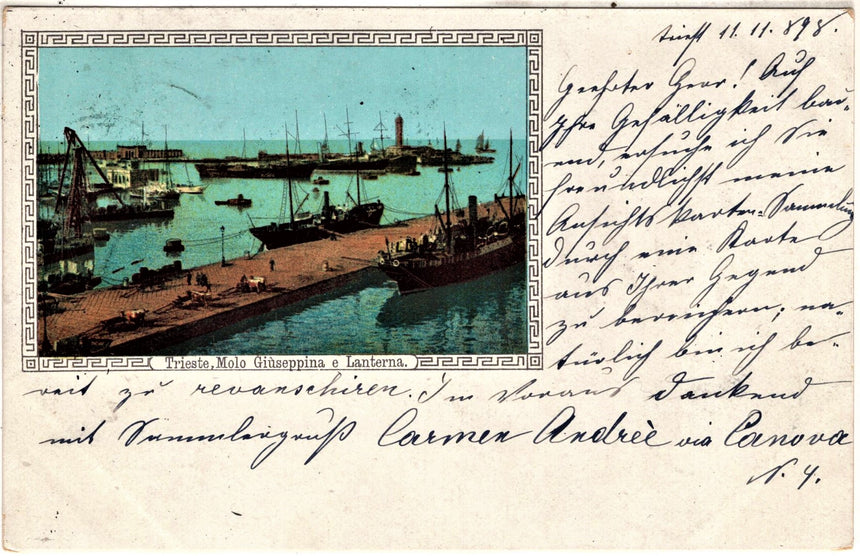 Triest 11.11.898.
Geehrter Herr! Auf
Ihre Gefälligkeit bau-
end, ersuche ich Sie
freundlichst meine
Ansichtskarten-Sammlung
durch eine Karte
aus Ihrer Gegend
zu bereichern; na-
türlich bin ich be-
Trieste, Molo Giùseppina e Lanterna.
reit zu revanschiren. Im Voraus dankend
mit Sammlergruß Carmen Andrèe via Canova
N. 4.